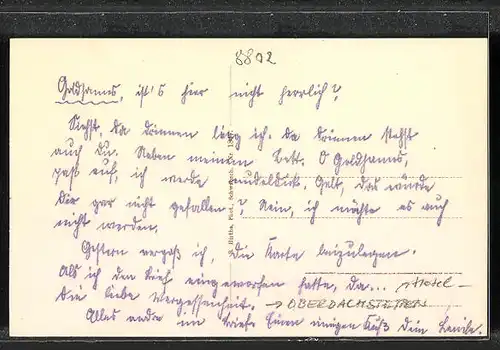 8802
Goldhannes, ist's hier nicht herrlich?
Siehst, da drinnen lieg ich. Da drinnen stehst
auch du. Neben meinem Bett. O Goldhannes,
paß auf, ich werde nudeldick. Gelt, das würde
dir gar nicht gefallen? Nein, ich möchte es auch
nicht werden.
Gestern vergaß ich, die Karte beizulegen.
Als ich den Brief eingeworfen hatte, da... Hotel –
die liebe Vergessenheit. → OBERDACHSTETTEN
Alles andre im Briefe. Einen innigen Kuß Dein